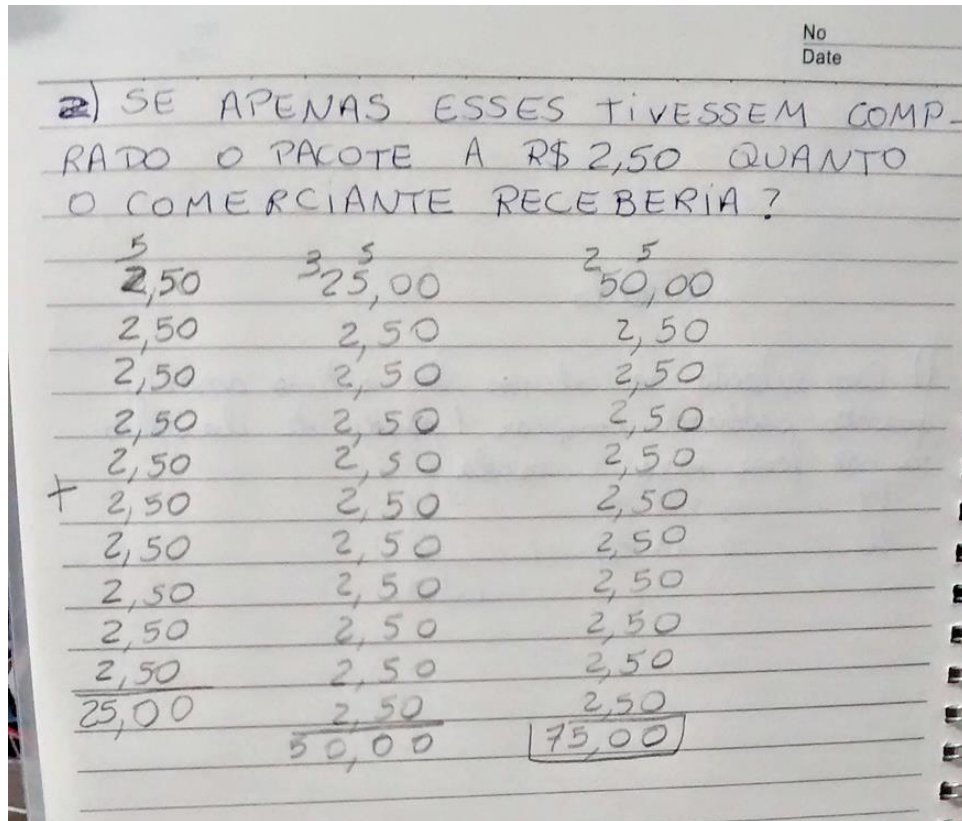 No
Date
2) SE APENAS ESSES TIVESSEM COMP-
RADO O PACOTE A R$ 2,50 QUANTO
O COMERCIANTE RECEBERIA?
5 3 5 2 5
2,50 25,00 50,00
2,50 2,50 2,50
2,50 2,50 2,50
2,50 2,50 2,50
2,50 2,50 2,50
+ 2,50 2,50 2,50
2,50 2,50 2,50
2,50 2,50 2,50
2,50 2,50 2,50
2,50 2,50 2,50
25,00 2,50 2,50
50,00 75,00